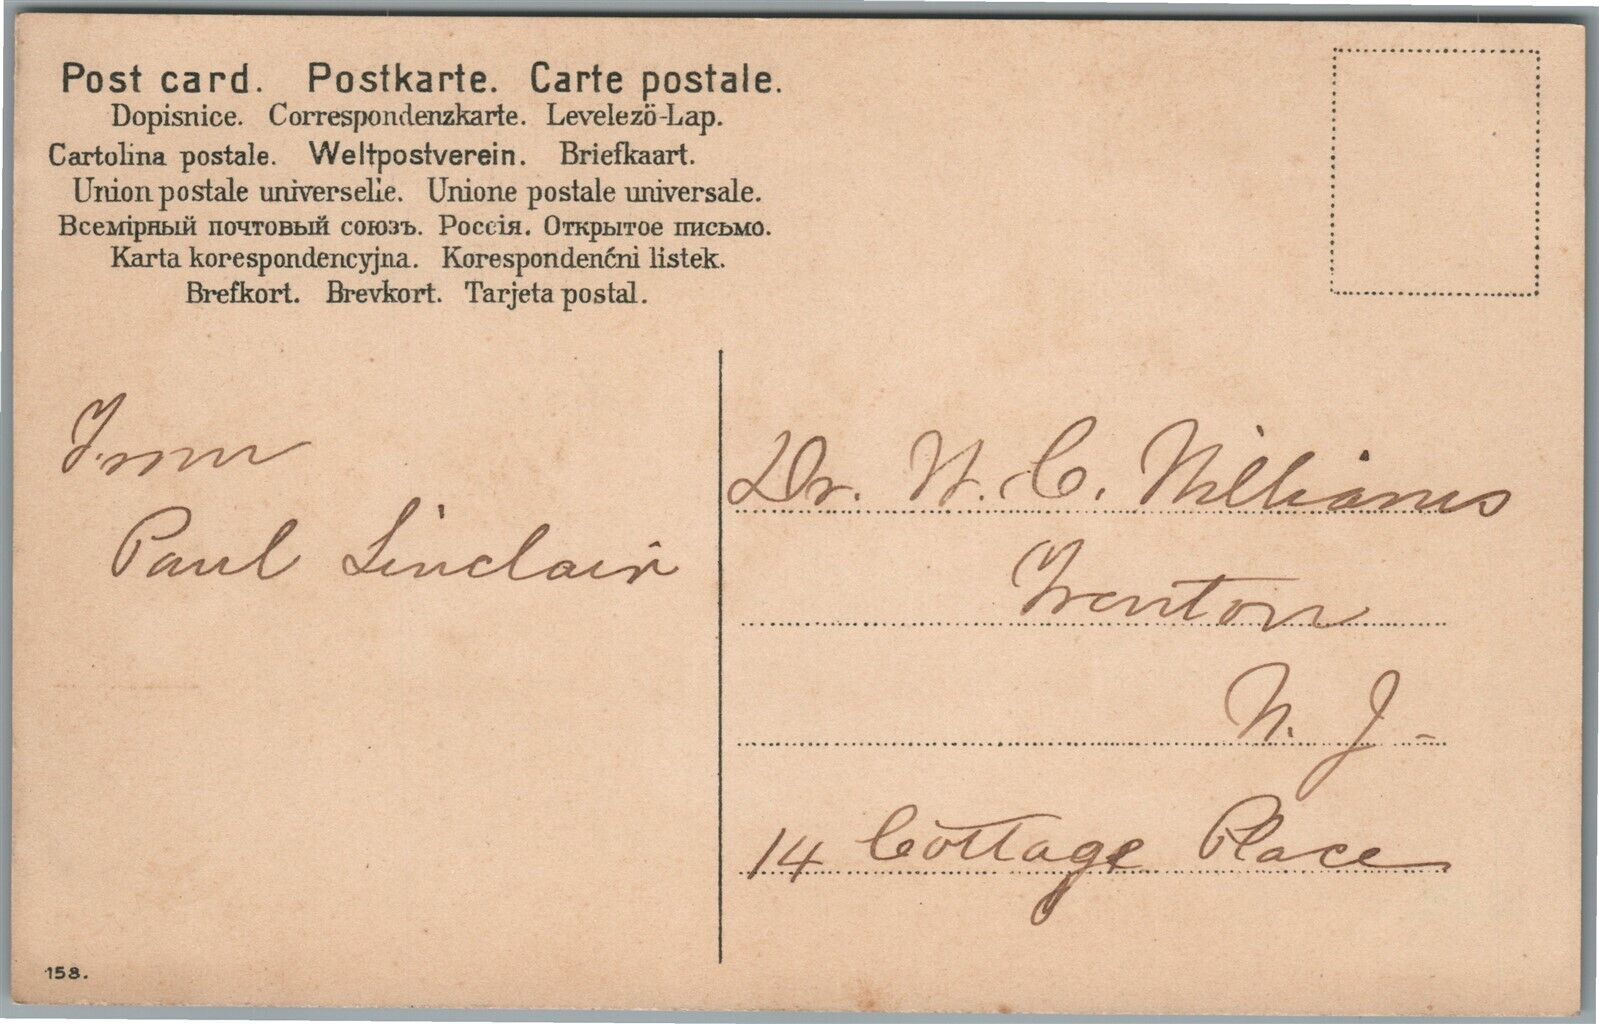 Post card. Postkarte. Carte postale.
Dopisnice. Correspondenzkarte. Levelezö-Lap.
Cartolina postale. Weltpostverein. Briefkaart.
Union postale universelle. Unione postale universale.
Всемірный почтовый союзъ. Россія. Открытое письмо.
Karta korespondencyjna. Korespondenćni listek.
Brefkort. Brevkort. Tarjeta postal.
From
Paul Sinclair
Dr. W. C. Williams
Trenton
N. J-
14 Cottage Place
158.